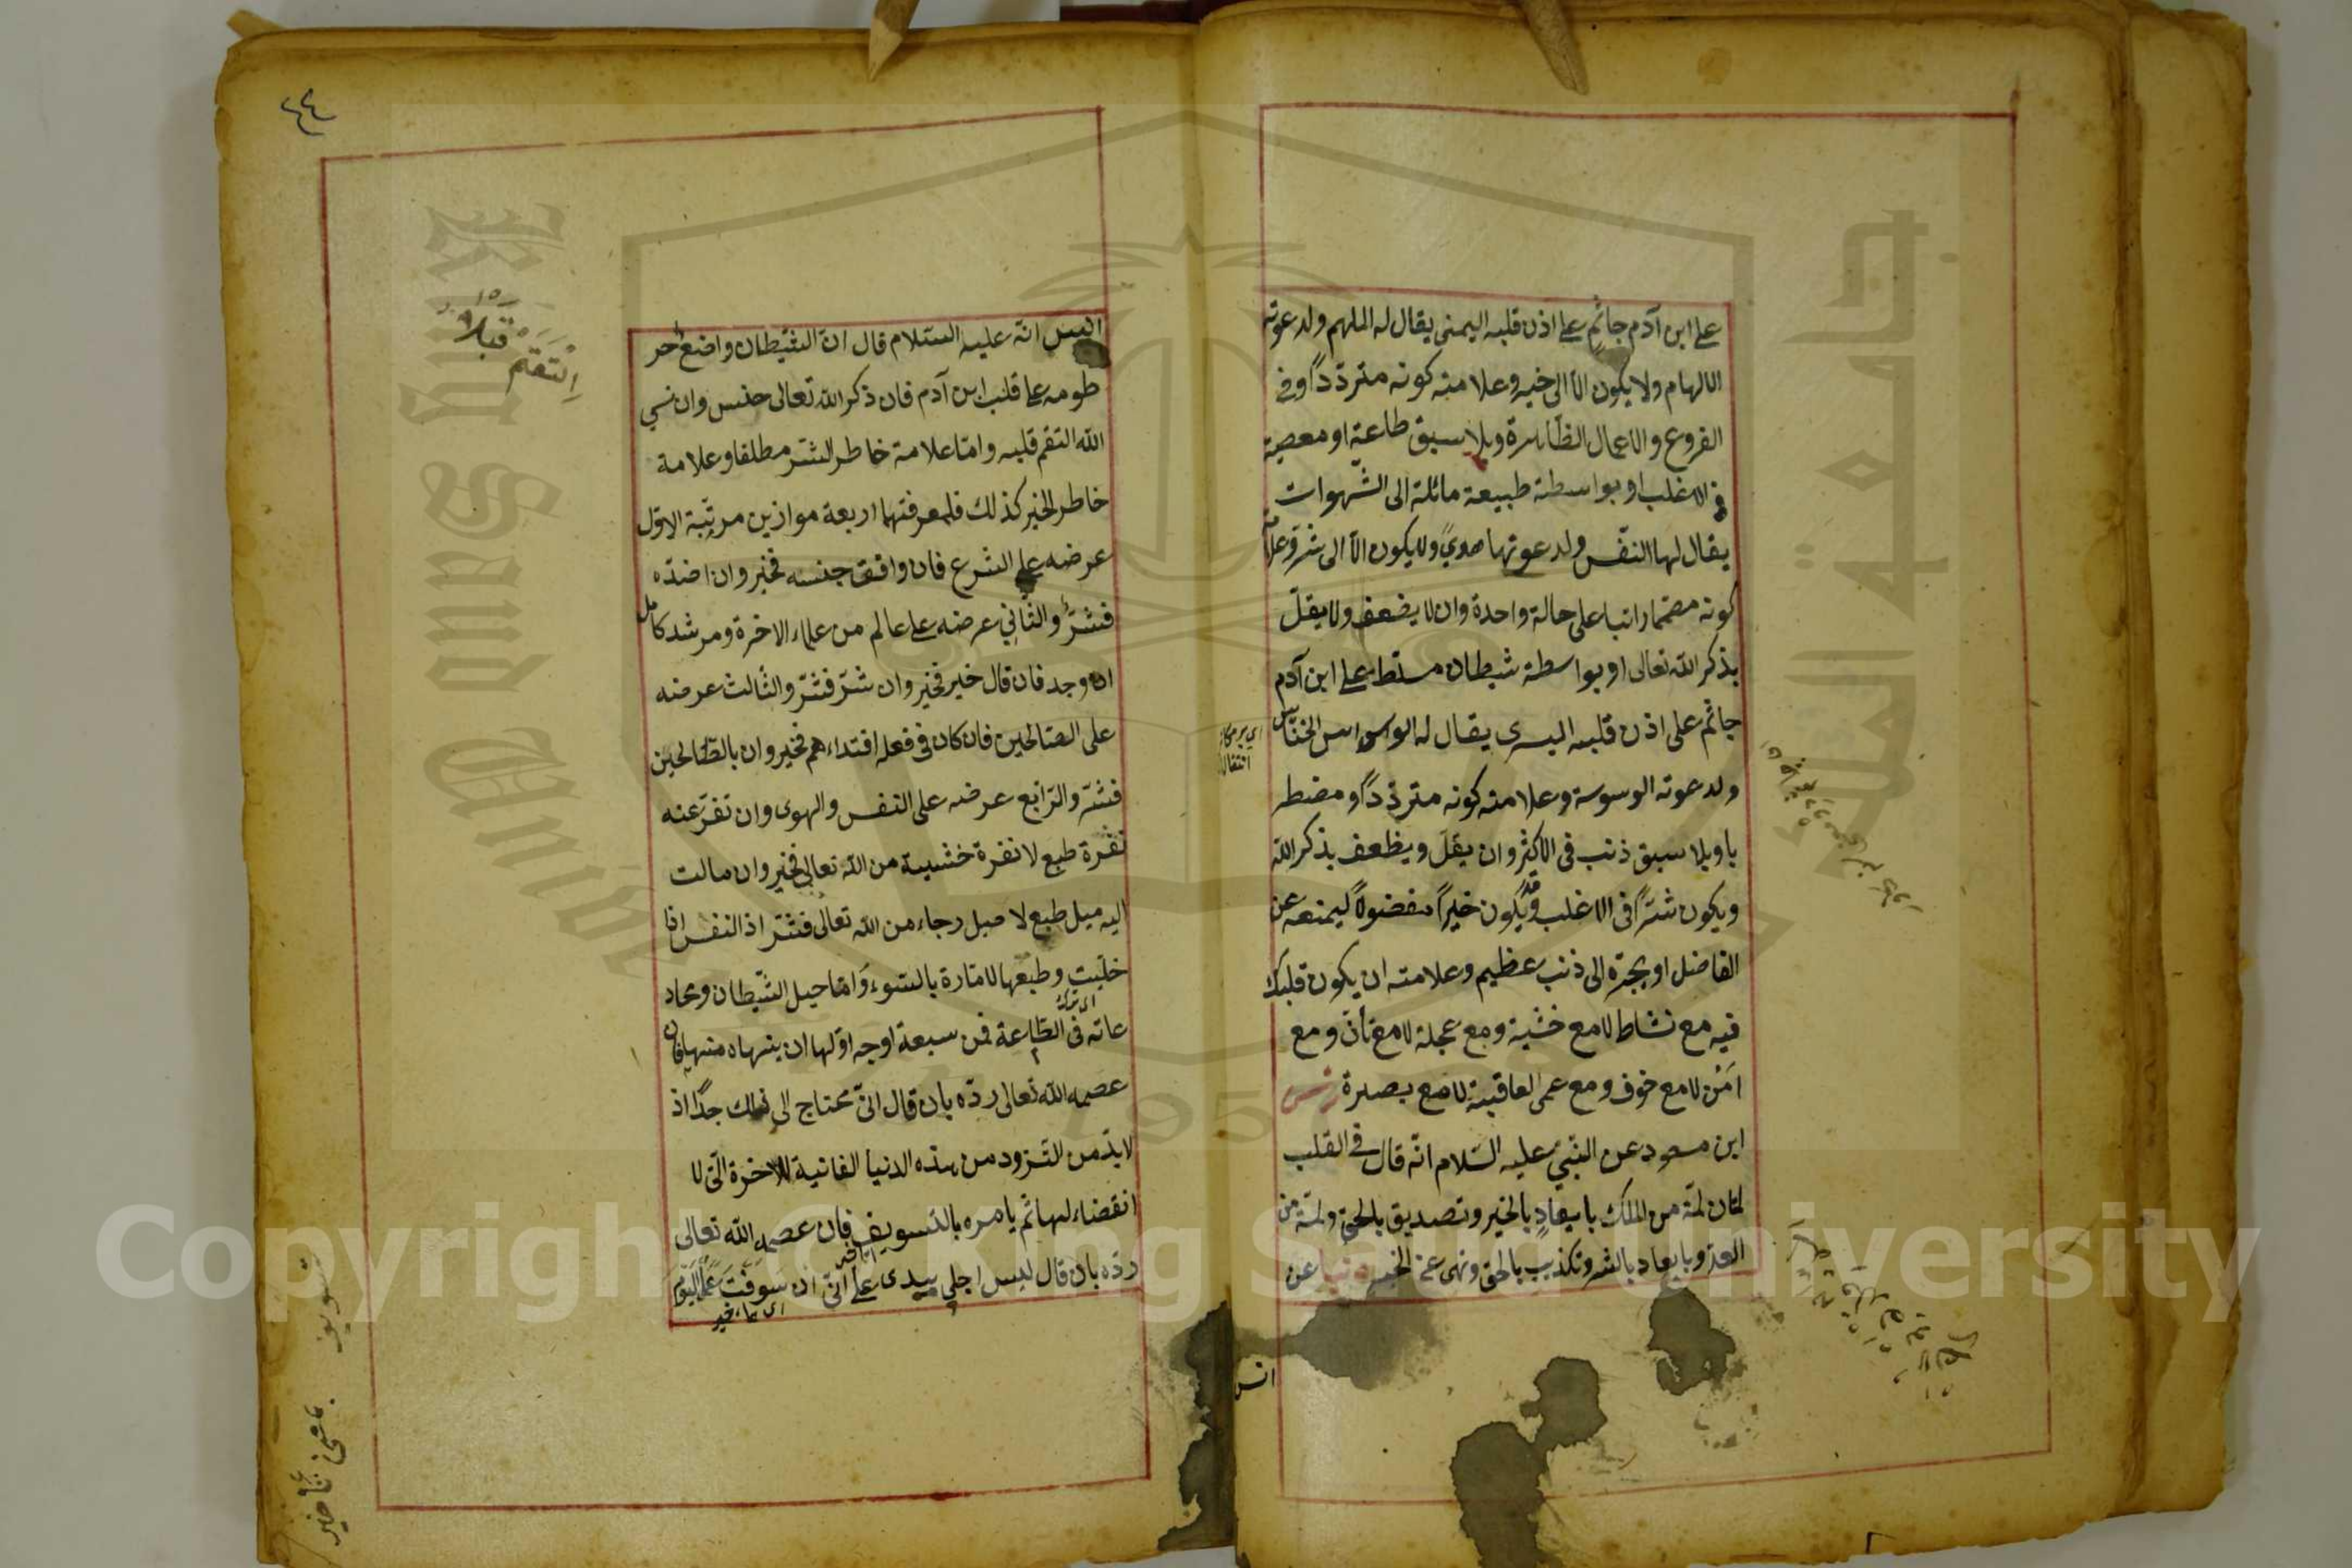 على ابن آدم جاثم على اذن قلبه اليمنى يقال له الملهم ولدعوته
الالهام ولا يكون الا الى خير وعلامته كونه مترددًا وفى
الفروع والاعمال الظاهرة وبلا سبق طاعة او معصية
فى الاغلب او بواسطة طبيعة مائلة الى الشهوات
يقال لها النفس ولدعوتها هوىً ولا يكون الا الى شر وعلامته
كونه مصمما راتبا على حالة واحدة وان لا يضعف ولا يقل
بذكر الله تعالى او بواسطة شيطان مسلط على ابن آدم
جاثم على اذن قلبه اليسرى يقال له الوسواس الخناس
ولدعوته الوسوسة وعلامته كونه مترددًا ومضطر
با وبلا سبق ذنب فى الاكثر وان يقل ويظعف بذكر الله
ويكون شرًا فى الاغلب وقد يكون خيرًا مفضولًا ليمنعه عن
الفاضل او يجره الى ذنب عظيم وعلامته ان يكون قلبك
فيه مع نشاط لا مع خشية ومع عجلة لا مع تأن ومع
امن لا مع خوف ومع عمى العاقبة لا مع بصيرة
ابن مسعود عن النبي عليه السلام انه قال فى القلب
لمتان لمة من الملك بايعاد بالخير وتصديق بالحق ولمة من
العدو بايعاد بالشر وتكذيب بالحق ونهى عن الخير عن
انس
اليس انه عليه السلام قال ان الشيطان واضع خر
طومه على قلب ابن آدم فان ذكر الله تعالى خنس وان نسي
الله التقم قلبه واما علامة خاطر الشر مطلقا وعلامة
خاطر الخير كذلك فلمعرفتهما اربعة موازين مرتبة الاول
عرضه على الشرع فان وافق جنسه فخير وان اضده
فشر والثاني عرضه على عالم من علماء الاخرة ومرشد كامل
ان وجد فان قال خير فخير وان شر فشر والثالث عرضه
على الصالحين فان كان فى فعله اقتداءهم فخير وان بالطالحين
فشر والرابع عرضه على النفس والهوى وان تفر عنه
نفرة طبع لا نفرة خشية من الله تعالى فخير وان مالت
اليه ميل طبع لا ميل رجاء من الله تعالى فشر اذ النفس اذا
خليت وطبعها لامارة بالسوء واما حيل الشيطان ومخاد
عاته فى الطاعة فمن سبعة اوجه اولها ان ينهاه منها فان
عصمه الله تعالى رده بان قال انى محتاج الى ذلك جدًا اذ
لا بد من التزود من هذه الدنيا الفانية للاخرة التى لا
انقضاء لها ثم يامره بالتسويف فان عصمه الله تعالى
رده بان قال ليس اجلى بيدى على انى ان سوفت عمل اليوم
اى تأخير
اِلْتَقَمَ
تسويف
بمعنى تأخير
Copyright © King Saud University
King Saud University
جامعة الملك
1957